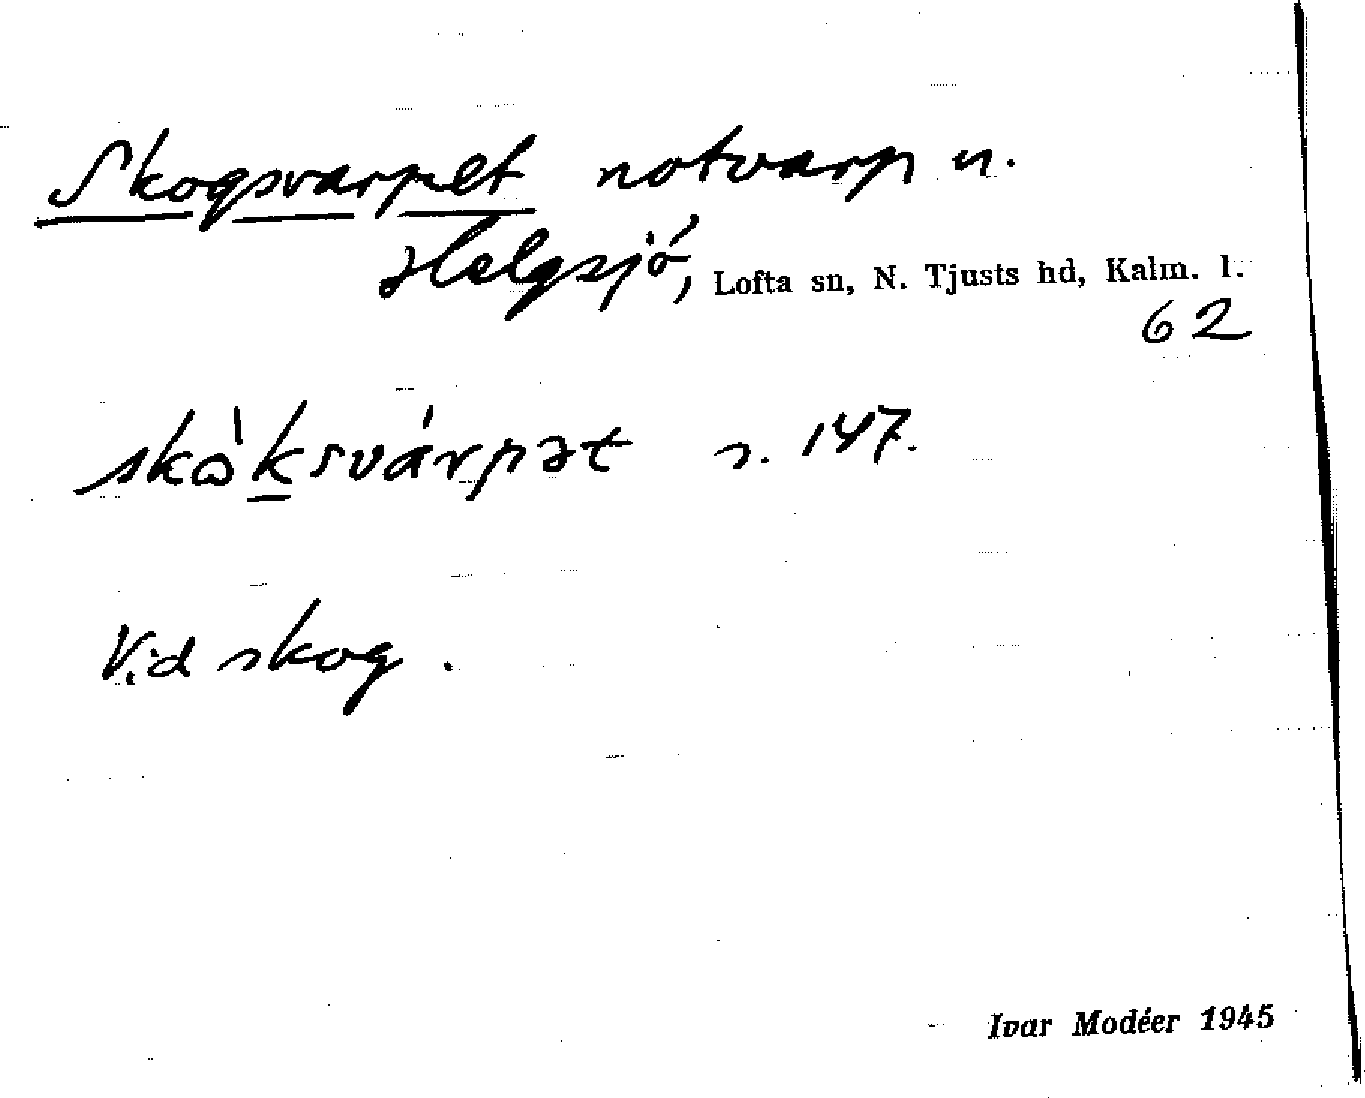 Skogsvarpet notvarp u.
Helgsjö, Lofta sn, N. Tjusts hd, Kalm. l.
62
skɷ̀ksvárpət s. 147.
Vid skog.
Ivar Modéer 1945